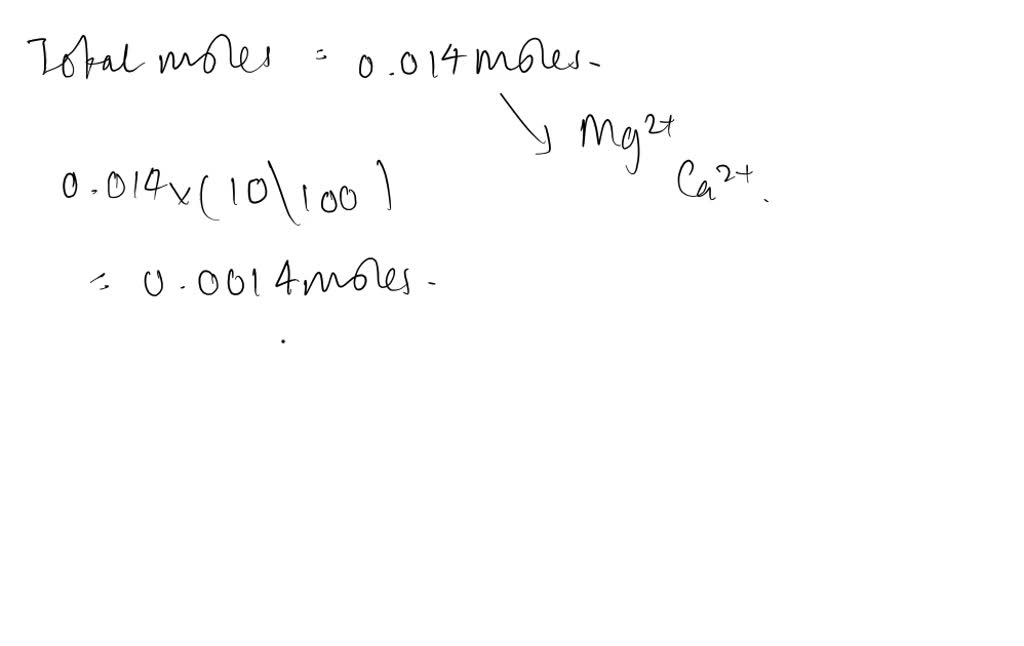 Total moles = 0.014 moles.
Mg²⁺
Ca²⁺.
0.014 x (10\100)
= 0.0014 moles.